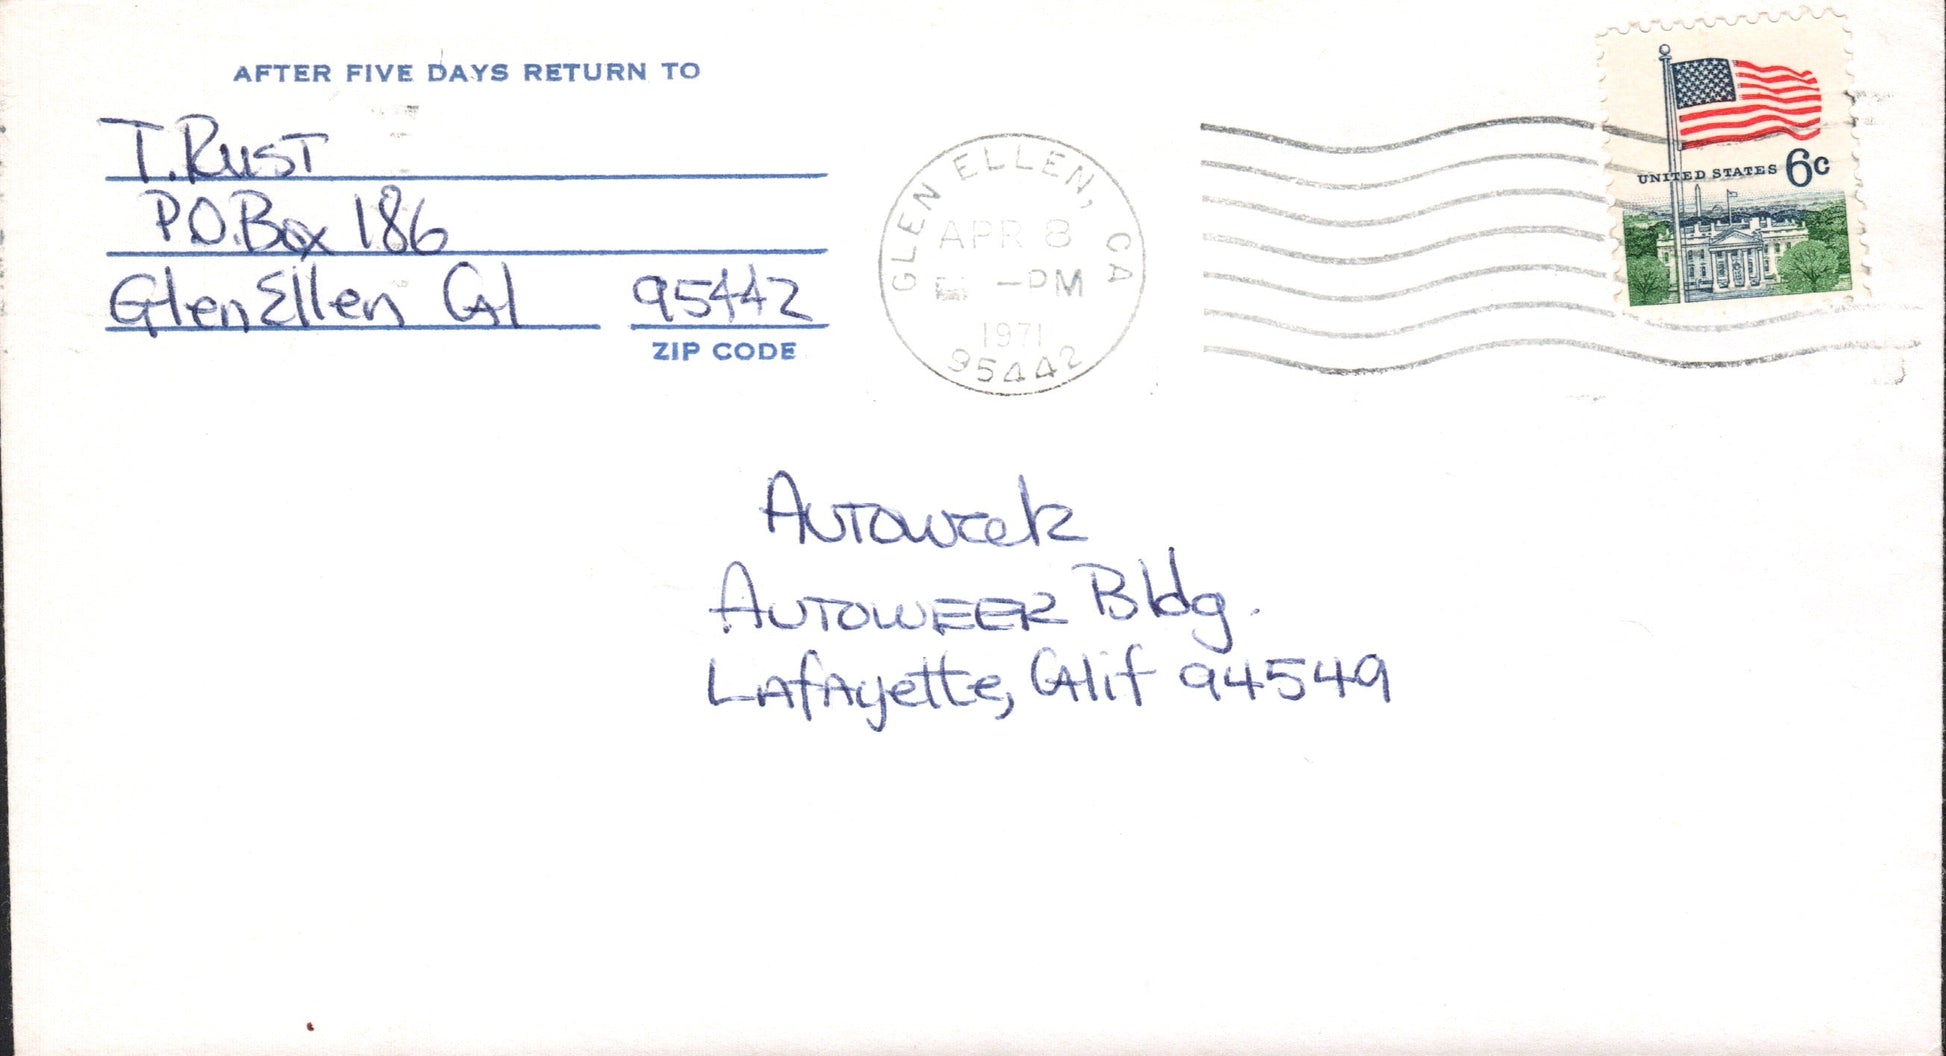 AFTER FIVE DAYS RETURN TO
T. Rust
P.O. Box 186
Glen Ellen Cal 95442
ZIP CODE
GLEN ELLEN, CA
APR 8
-PM
1971
95442
UNITED STATES 6c
Autoweek
AUTOWEEK Bldg.
Lafayette, Calif 94549